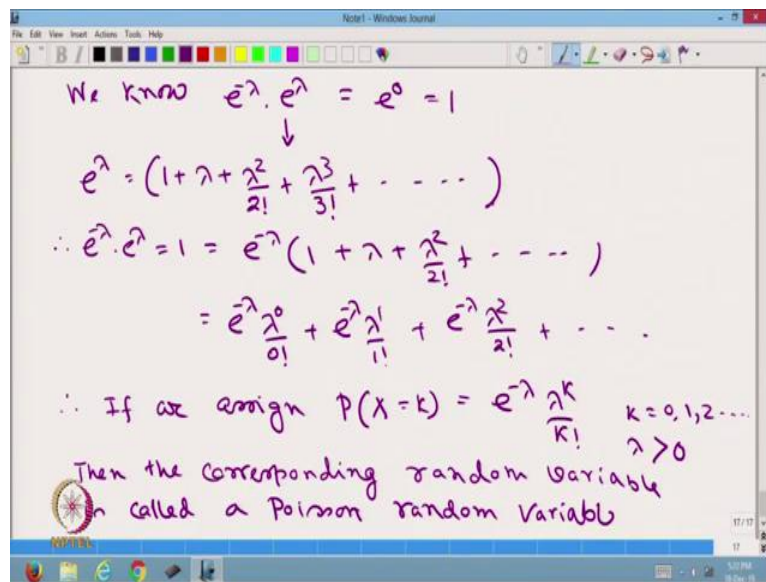 Note1 - Windows Journal
File Edit View Insert Actions Tools Help
We know e^{-λ} . e^{λ} = e^0 = 1
↓
e^{λ} = (1 + λ + λ^2/2! + λ^3/3! + - - - - -)
∴ e^{-λ}.e^{λ} = 1 = e^{-λ} (1 + λ + λ^2/2! + - - - -)
= e^{-λ} λ^0/0! + e^{-λ} λ^1/1! + e^{-λ} λ^2/2! + - - - .
∴ If we assign P(X = k) = e^{-λ} λ^k/k! k = 0, 1, 2 ....
λ > 0
Then the corresponding random variable
is called a Poisson random variabl
NPTEL
17/17
17
5:22 PM